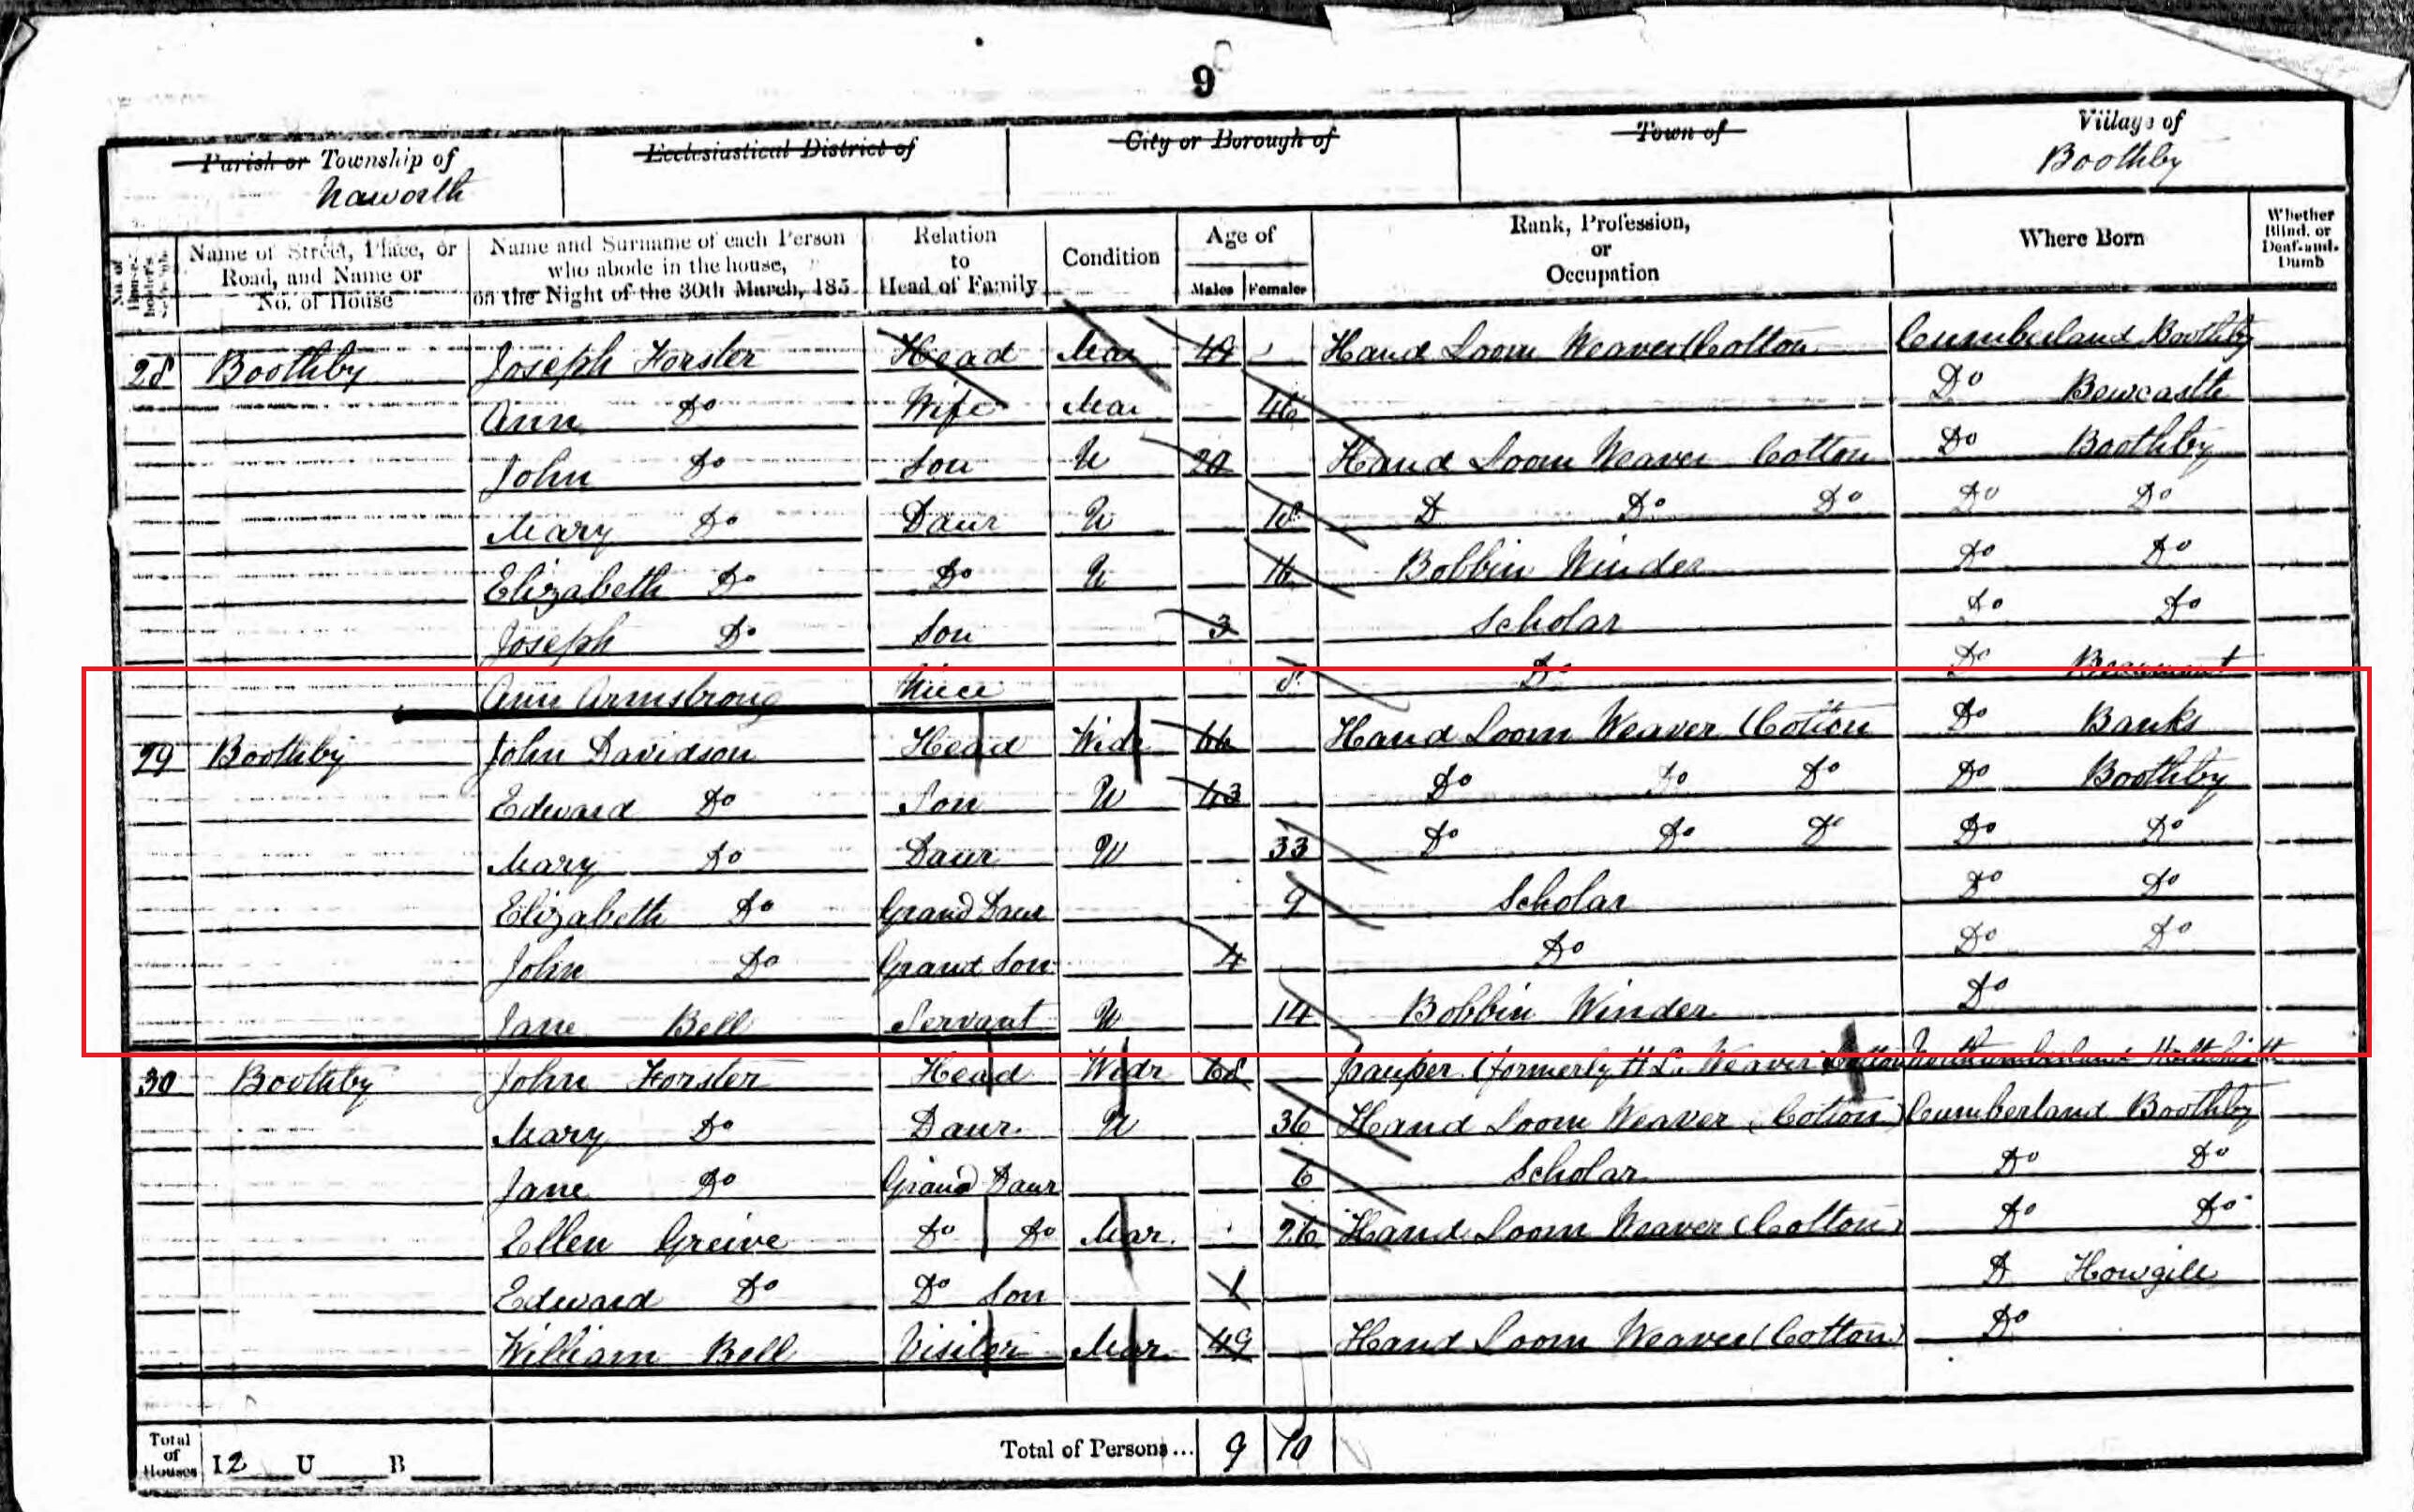 9
Parish or Township of Ecclesiastical District of City or Borough of Town of Village of
Naworth Boothby
No. of House-holder's Schedule Name of Street, Place, or Road, and Name or No. of House Name and Surname of each Person who abode in the house, on the Night of the 30th March, 185 Relation to Head of Family Condition Age of Males Females Rank, Profession, or Occupation Where Born Whether Blind, or Deaf-and-Dumb
28 Boothby Joseph Forster Head Mar 49 Hand Loom Weaver (Cotton Cumberland Boothby
Ann Do Wife Mar 46 Do Bewcastle
John Do Son U 20 Hand Loom Weaver Cotton Do Boothby
Mary Do Daur U 18 D Do Do Do Do
Elizabeth Do Do U 16 Bobbin Winder Do Do
Joseph Do Son 3 Scholar Do Do
Ann Armstrong Niece 8 Do Do
29 Boothby John Davidson Head Widr 66 Hand Loom Weaver (Cotton Do Banks
Edward Do Son U 43 Do Do Do Do Boothby
Mary Do Daur U 33 Do Do Do Do Do
Elizabeth Do Grand Daur 9 Scholar Do Do
John Do Grand Son 4 Do Do Do
Jane Bell Servant U 14 Bobbin Winder Do
30 Boothby John Forster Head Widr 68 Pauper (formerly H.L. Weaver Cotton Northumberland
Mary Do Daur. U 36 Hand Loom Weaver (Cotton) Cumberland Boothby
Jane Do Grand Daur 6 Scholar Do Do
Ellen Greive Do Do Mar. 26 Hand Loom Weaver (Cotton) Do Do
Edward Do Do Son 1 D Howgill
William Bell Visitor Mar. 49 Hand Loom Weaver (Cotton) Do
Total of Houses I 2 U B Total of Persons... 9 10